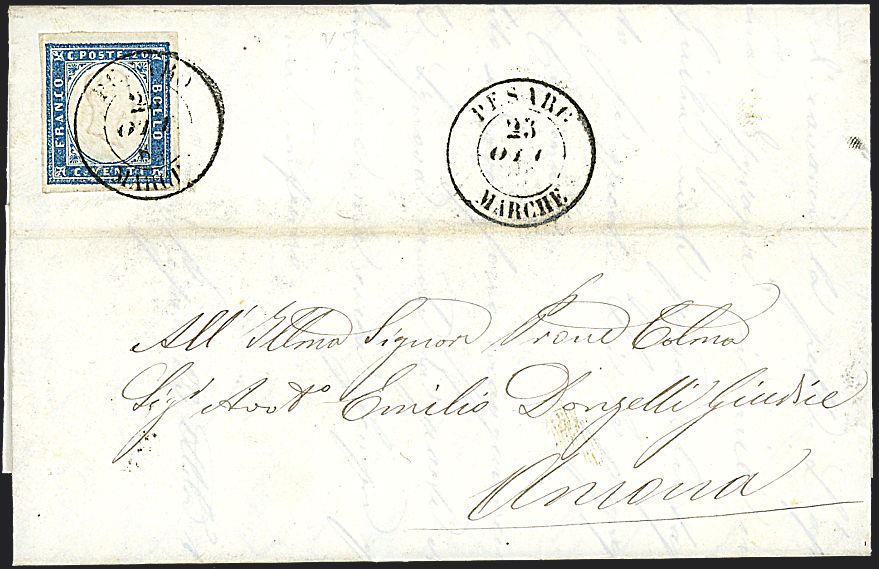 C. POSTE 20
FRANCO
BOLLO
C. VENTI
MARCHE
PESARO
23
OTT
MARCHE
All' Illmo Signor Prone Colmo
Sigr Avvto Emilio Donzelli Giudice
Ancona